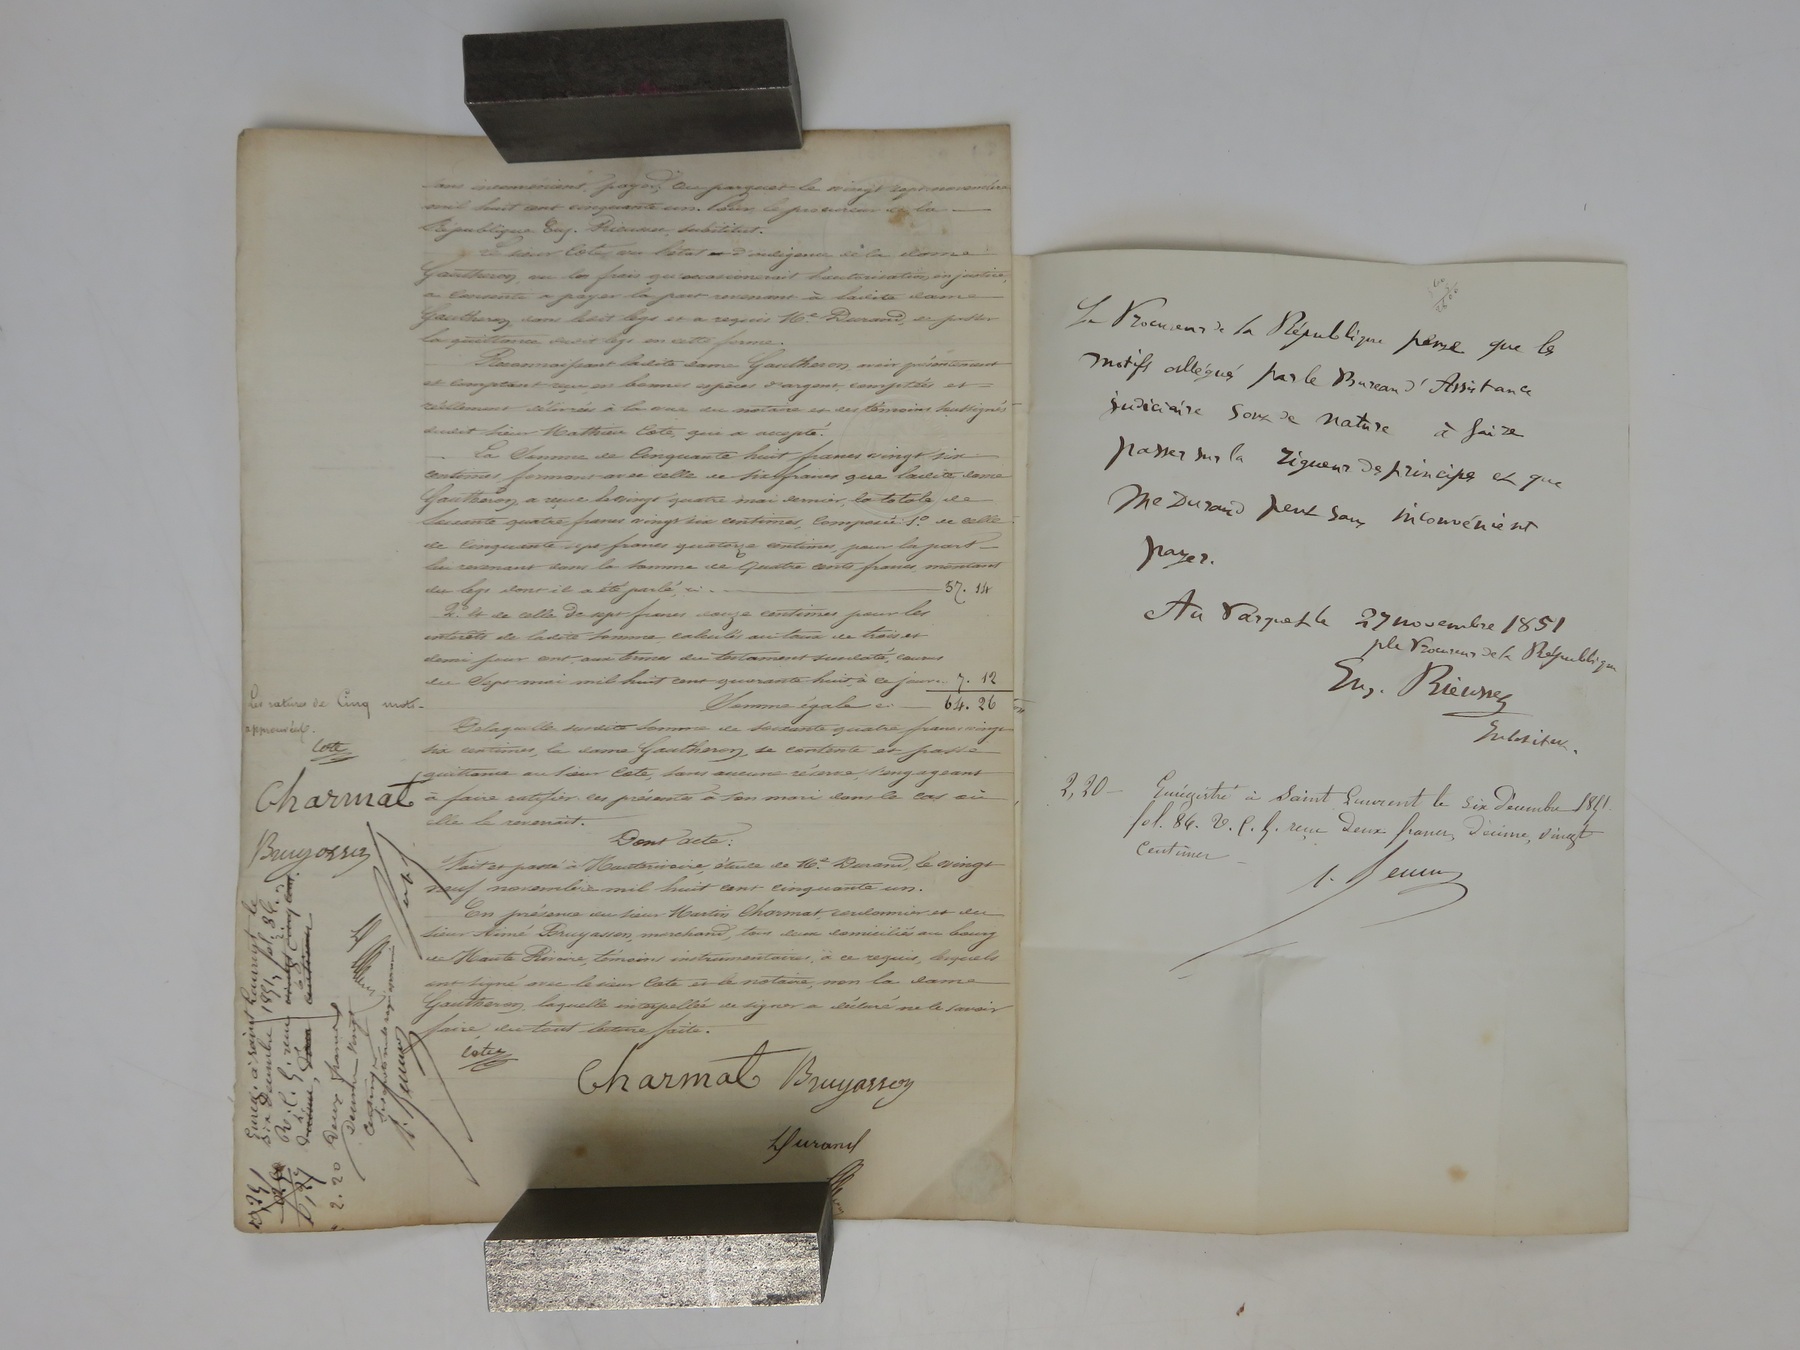 sans inconvénient, payer, au parquet le vingt sept novembre
mil huit cent cinquante un. Pour le procureur de la
République Eug. Rieussec, substitut.
Le sieur Cote, vu l'état d'indigence de la dame
Gautheron, vu les frais qu'occasionerait l'autorisation en justice,
a consenti a payer la part revenant à ladite dame
Gautheron dans ledit legs et a requis Me Durand, de passer
la quittance dudit legs en cette forme.
Reconnaissant ladite dame Gautheron avoir présentement
et comptant reçu en bonnes espèces d'argent, comptées et
réellement délivrées à la vue du notaire et des témoins soussignés
dudit sieur Mathieu Cote, que a accepté.
La Somme de Cinquante huit francs vingt six
centimes formant avec celle de six francs que ladite dame
Gautheron a reçue le vingt quatre mai dernier, la totale de
Soixante quatre francs vingt six centimes, Composée 1.º de celle
de Cinquante sept francs quatorze centimes, pour la part
lui revenant dans la somme de Quatre cents francs, montant
du legs dont il a été parlé, ci 57. 14
2.º Et de celle De sept francs douze centimes pour les
intérêts de ladite somme calculés au taux de trois et
demi pour cent, aux termes du testament susdaté, courus
du Sept mai mil huit cent quarante huit à ce jour 7. 12
Somme égale ci 64. 26
De laquelle susdite somme de Soixante quatre francs vingt
six centimes, la dame Gautheron se contente et passe
quittance au sieur Cote, sans aucune réserve, s'engageant
à faire ratifier ces présentes à son mari dans le cas où
elle le reverrait.
Dont acte:
Fait et passé à Hauterivoire, étude de Me Durand, le vingt
neuf novembre mil huit cent cinquante un.
En présence du sieur Martin Charmat, cordonnier et du
sieur Aimé Bruyasson, marchand, tous deux domiciliés au bourg
de Haute Rivoire, témoins instrumentaires, à ce requis, lesquels
ont signé avec le sieur Cote et le notaire, non la dame
Gautheron, laquelle interpellée de signer a déclaré ne le savoir
faire du tout lecture faite.
Cote
Charmat Bruyasson
Durand
Les ratures de Cinq mots
approuvées.
Cote
Charmat
Bruyasson
Enreg. à saint Laurent le
six decembre 1851, fol. 86.
V. C. 5. reçu
2.20 Deux francs
Decime vingt
Centimes
Le Procureur de la République pense que les
motifs allégués par le Bureau d'Assistance
judiciaire sont de nature à faire
passer sur la rigueur des principes et que
Me Durand peut sans inconvénient
payer.
Au Parquet le 27 novembre 1851
p le Procureur de la République
Eug. Rieussec
Substitut.
2,20 - Enregistré à Saint Laurent le six Decembre 1851.
fol. 86. V. C. 5. reçu Deux francs, décime, vingt
Centimes